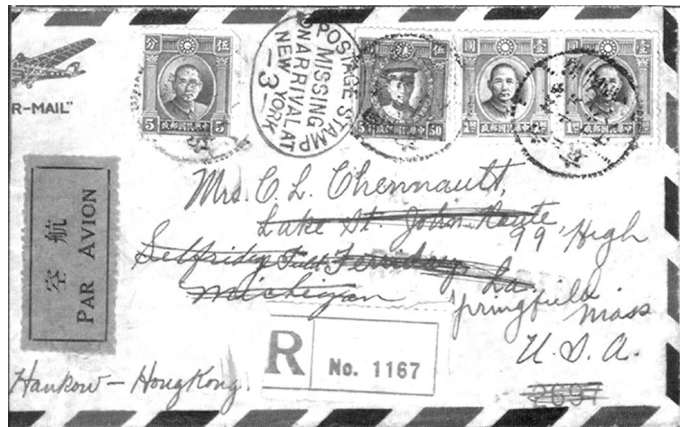 R-MAIL"
分 伍
5 5
POSTAGE STAMP
MISSING
ON ARRIVAL AT
NEW YORK
-3-
50
圓 壹
圓 壹
航空
PAR AVION
Mrs. C. L. Chennault,
Lake St. John Route,
99 High
Selfridge Field Ferriday, La.
Michigan
Springfield
Mass
U. S. A.
R No. 1167
Hankow - Hong Kong.
2697